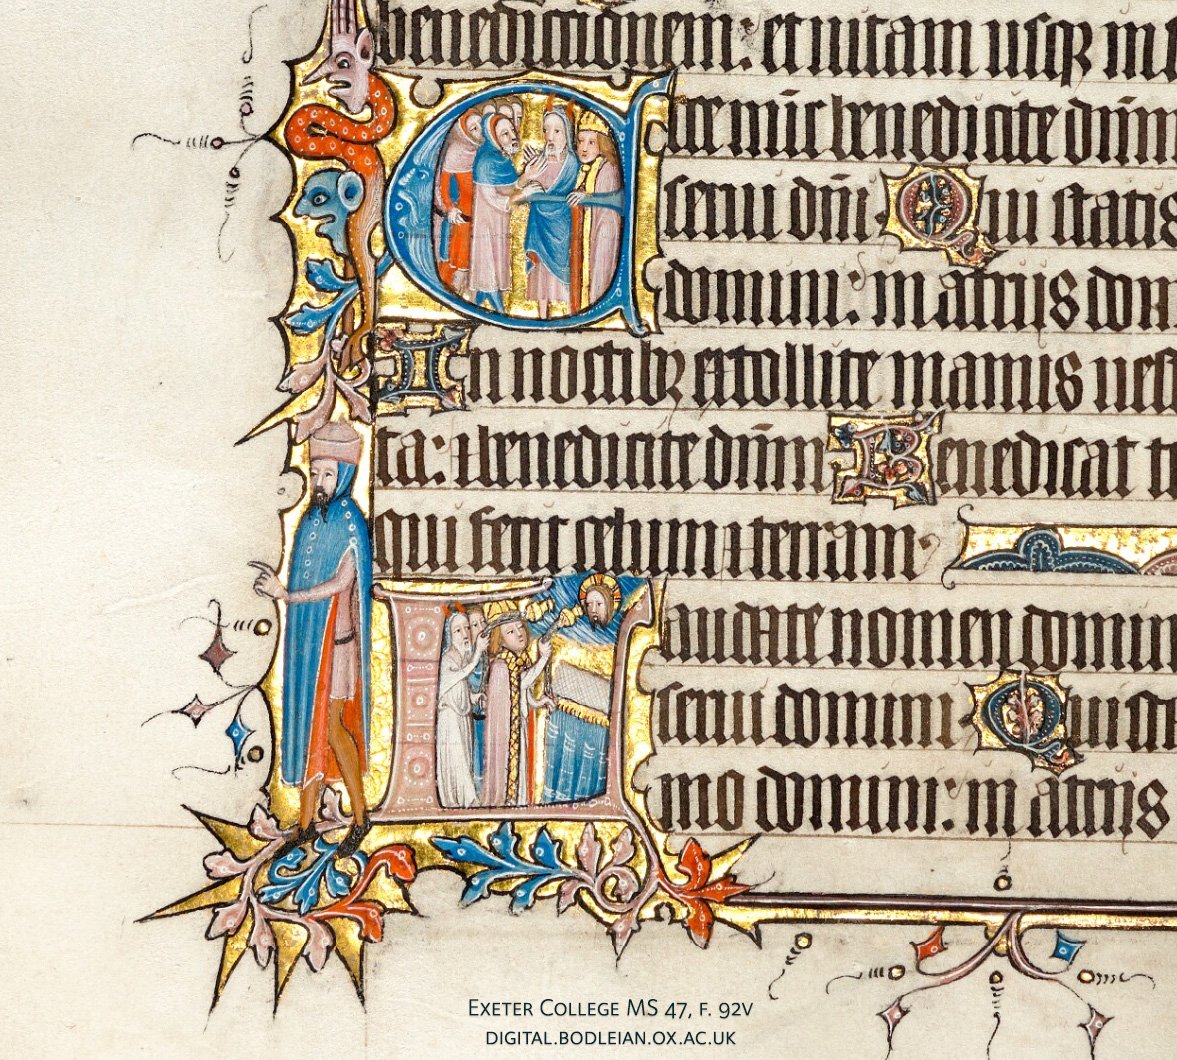 benedictionem: et uitam usq; in s
Ecce nūc benedicite dn̄m
serui dn̄i. Qui statis
domini: in atriis dom
In noctib; extollite manus uest
cta: ⁊ benedicite dn̄m Benedicat te
qui fecit celum ⁊ terram.
Laudate nomen domini
serui domini. Qui sta
mo domini: in atriis
EXETER COLLEGE MS 47, F. 92V
DIGITAL.BODLEIAN.OX.AC.UK